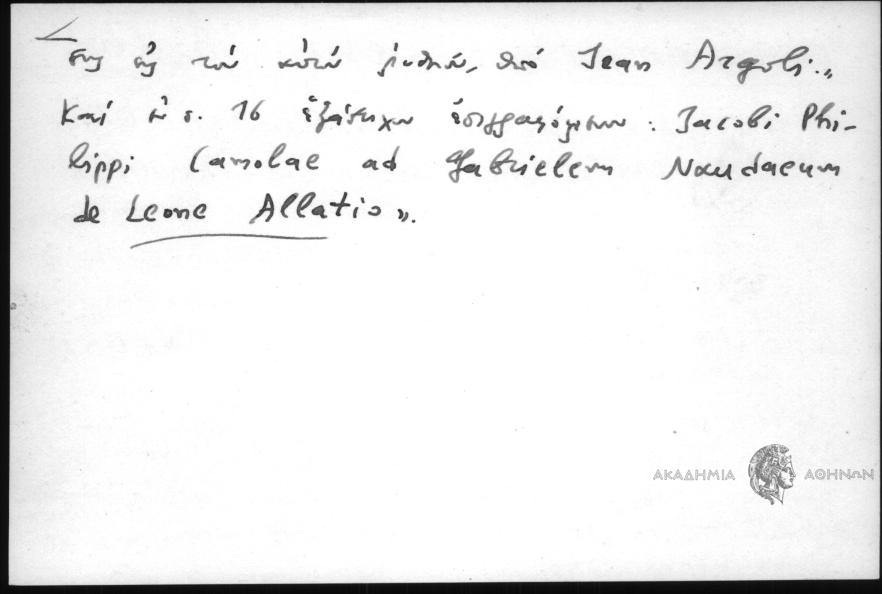 εἰς τὸν αὐτὸν ὑπὸ Jean Argoli.,
Καί ἐν σ. 16 ἑξάστιχον ἐπιγραφόμενον: Jacobi Phi-
lippi Camolae ad Gabrielem Naudaeum
de Leone Allatio».
ΑΚΑΔΗΜΙΑ ΑΘΗΝΩΝ